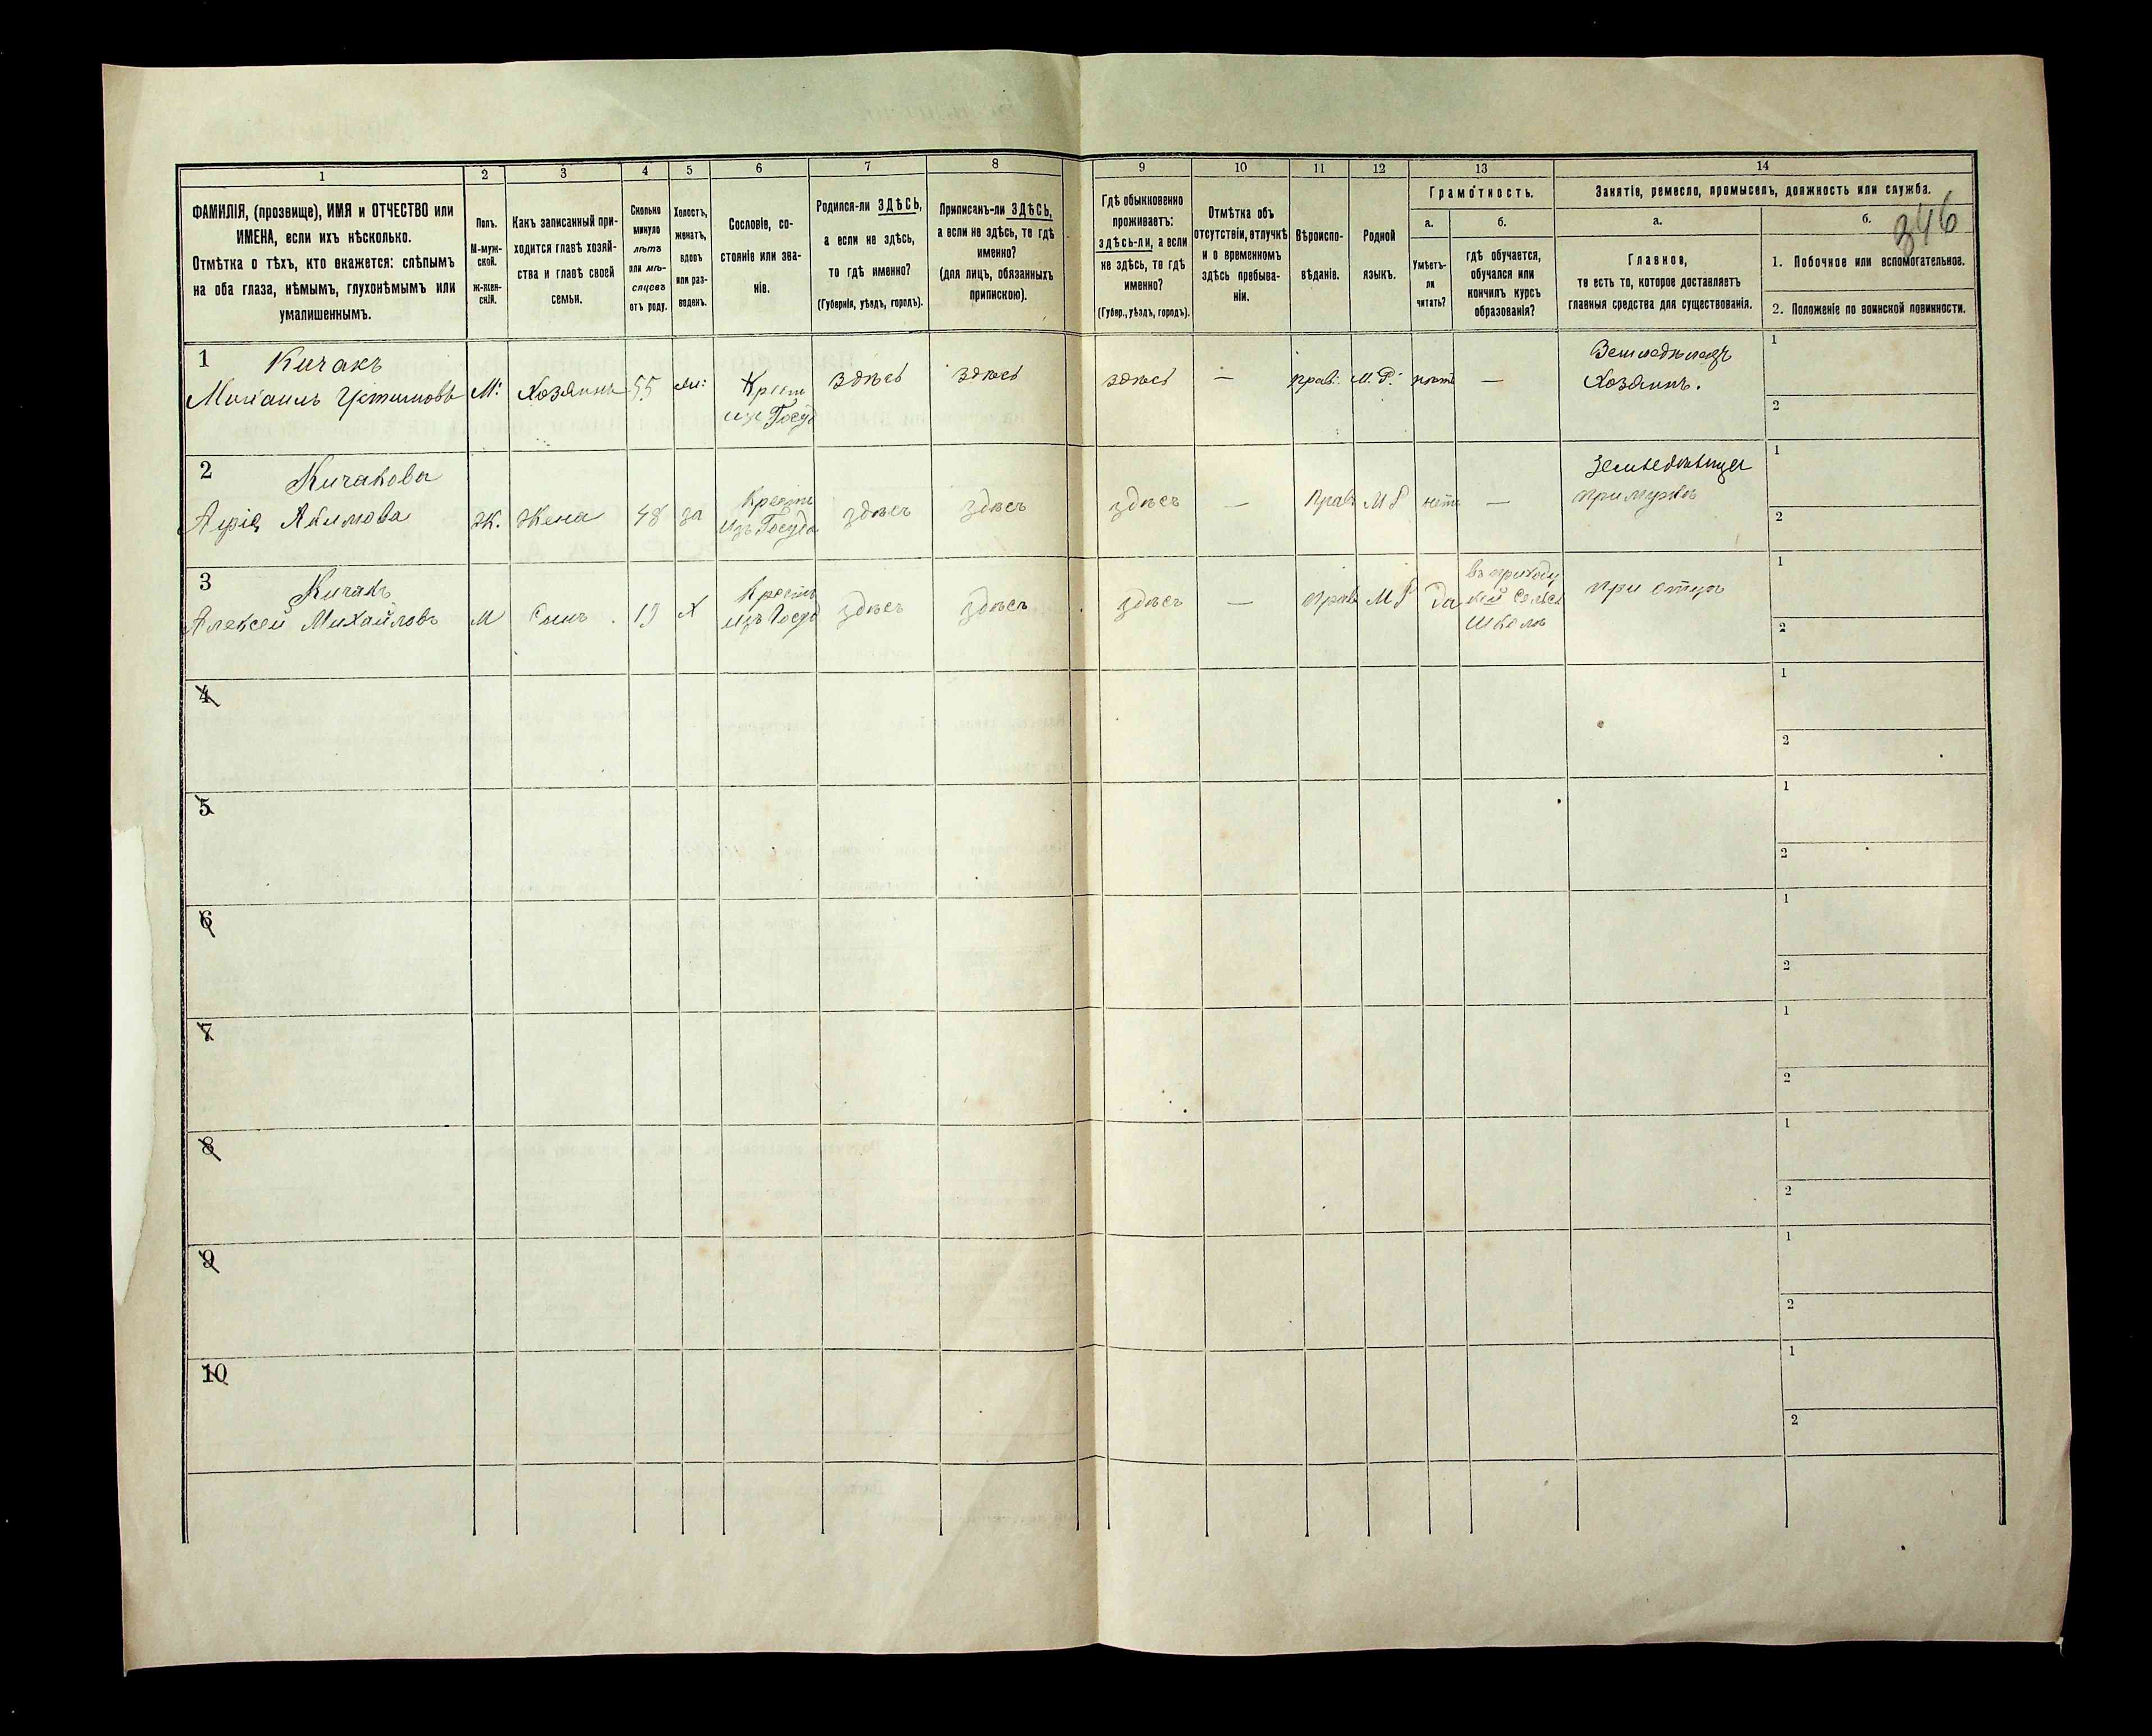 1 2 3 4 5 6 7 8 9 10 11 12 13 14
ФАМИЛІЯ, (прозвище), ИМЯ и ОТЧЕСТВО или
ИМЕНА, если ихъ нѣсколько.
Отмѣтка о тѣхъ, кто окажется: слѣпымъ
на оба глаза, нѣмымъ, глухонѣмымъ или
умалишеннымъ.
Полъ.
М-муж-
ской.
Ж-жен-
скій.
Какъ записанный при-
ходится главѣ хозяй-
ства и главѣ своей
семьи.
Сколько
минуло
лѣтъ
или мѣ-
сяцевъ
отъ роду.
Холостъ,
женатъ,
вдовъ
или раз-
веденъ.
Сословіе, со-
стояніе или зва-
ніе.
Родился-ли ЗДѢСЬ,
а если не здѣсь,
то гдѣ именно?
(Губернія, уѣздъ, городъ).
Приписанъ-ли ЗДѢСЬ,
а если не здѣсь, то гдѣ
именно?
(для лицъ, обязанныхъ
припискою).
Гдѣ обыкновенно
проживаетъ:
здѣсь-ли, а если
не здѣсь, то гдѣ
именно?
(Губер., уѣздъ, городъ).
Отмѣтка объ
отсутствіи, отлучкѣ
и о временномъ
здѣсь пребыва-
ніи.
Вѣроиспо-
вѣданіе.
Родной
языкъ.
Грамотность.
а.
Умѣетъ-
ли
читать?
б.
гдѣ обучается,
обучался или
кончилъ курсъ
образованія?
Занятіе, ремесло, промыселъ, должность или служба.
а.
Главное,
то есть то, которое доставляетъ
главныя средства для существованія.
б.
346
1. Побочное или вспомогательное.
2. Положеніе по воинской повинности.
1 Кичакъ
Михаилъ Устимовъ М: Хозяинъ 55 жн: Крест здѣсь здѣсь здѣсь — прав: М.Р. нѣтъ — Земледѣлецъ
изъ Госуд Хозяинъ. 1
2
2 Кичакова
Акимова Ж. Жена 48 за Крест здѣсь здѣсь здѣсь — Прав МР нетъ —
изъ Госуда при мужѣ 1
2
3 Кичакъ
Алексей Михайловъ М Сынъ 19 Х Крестъ здѣсь здѣсь здѣсь — Прав МР да въ приход при отцѣ
изъ Госуд кой сельск
школѣ 1
2
4 1
2
5 1
2
6 1
2
7 1
2
8 1
2
9 1
2
10 1
2